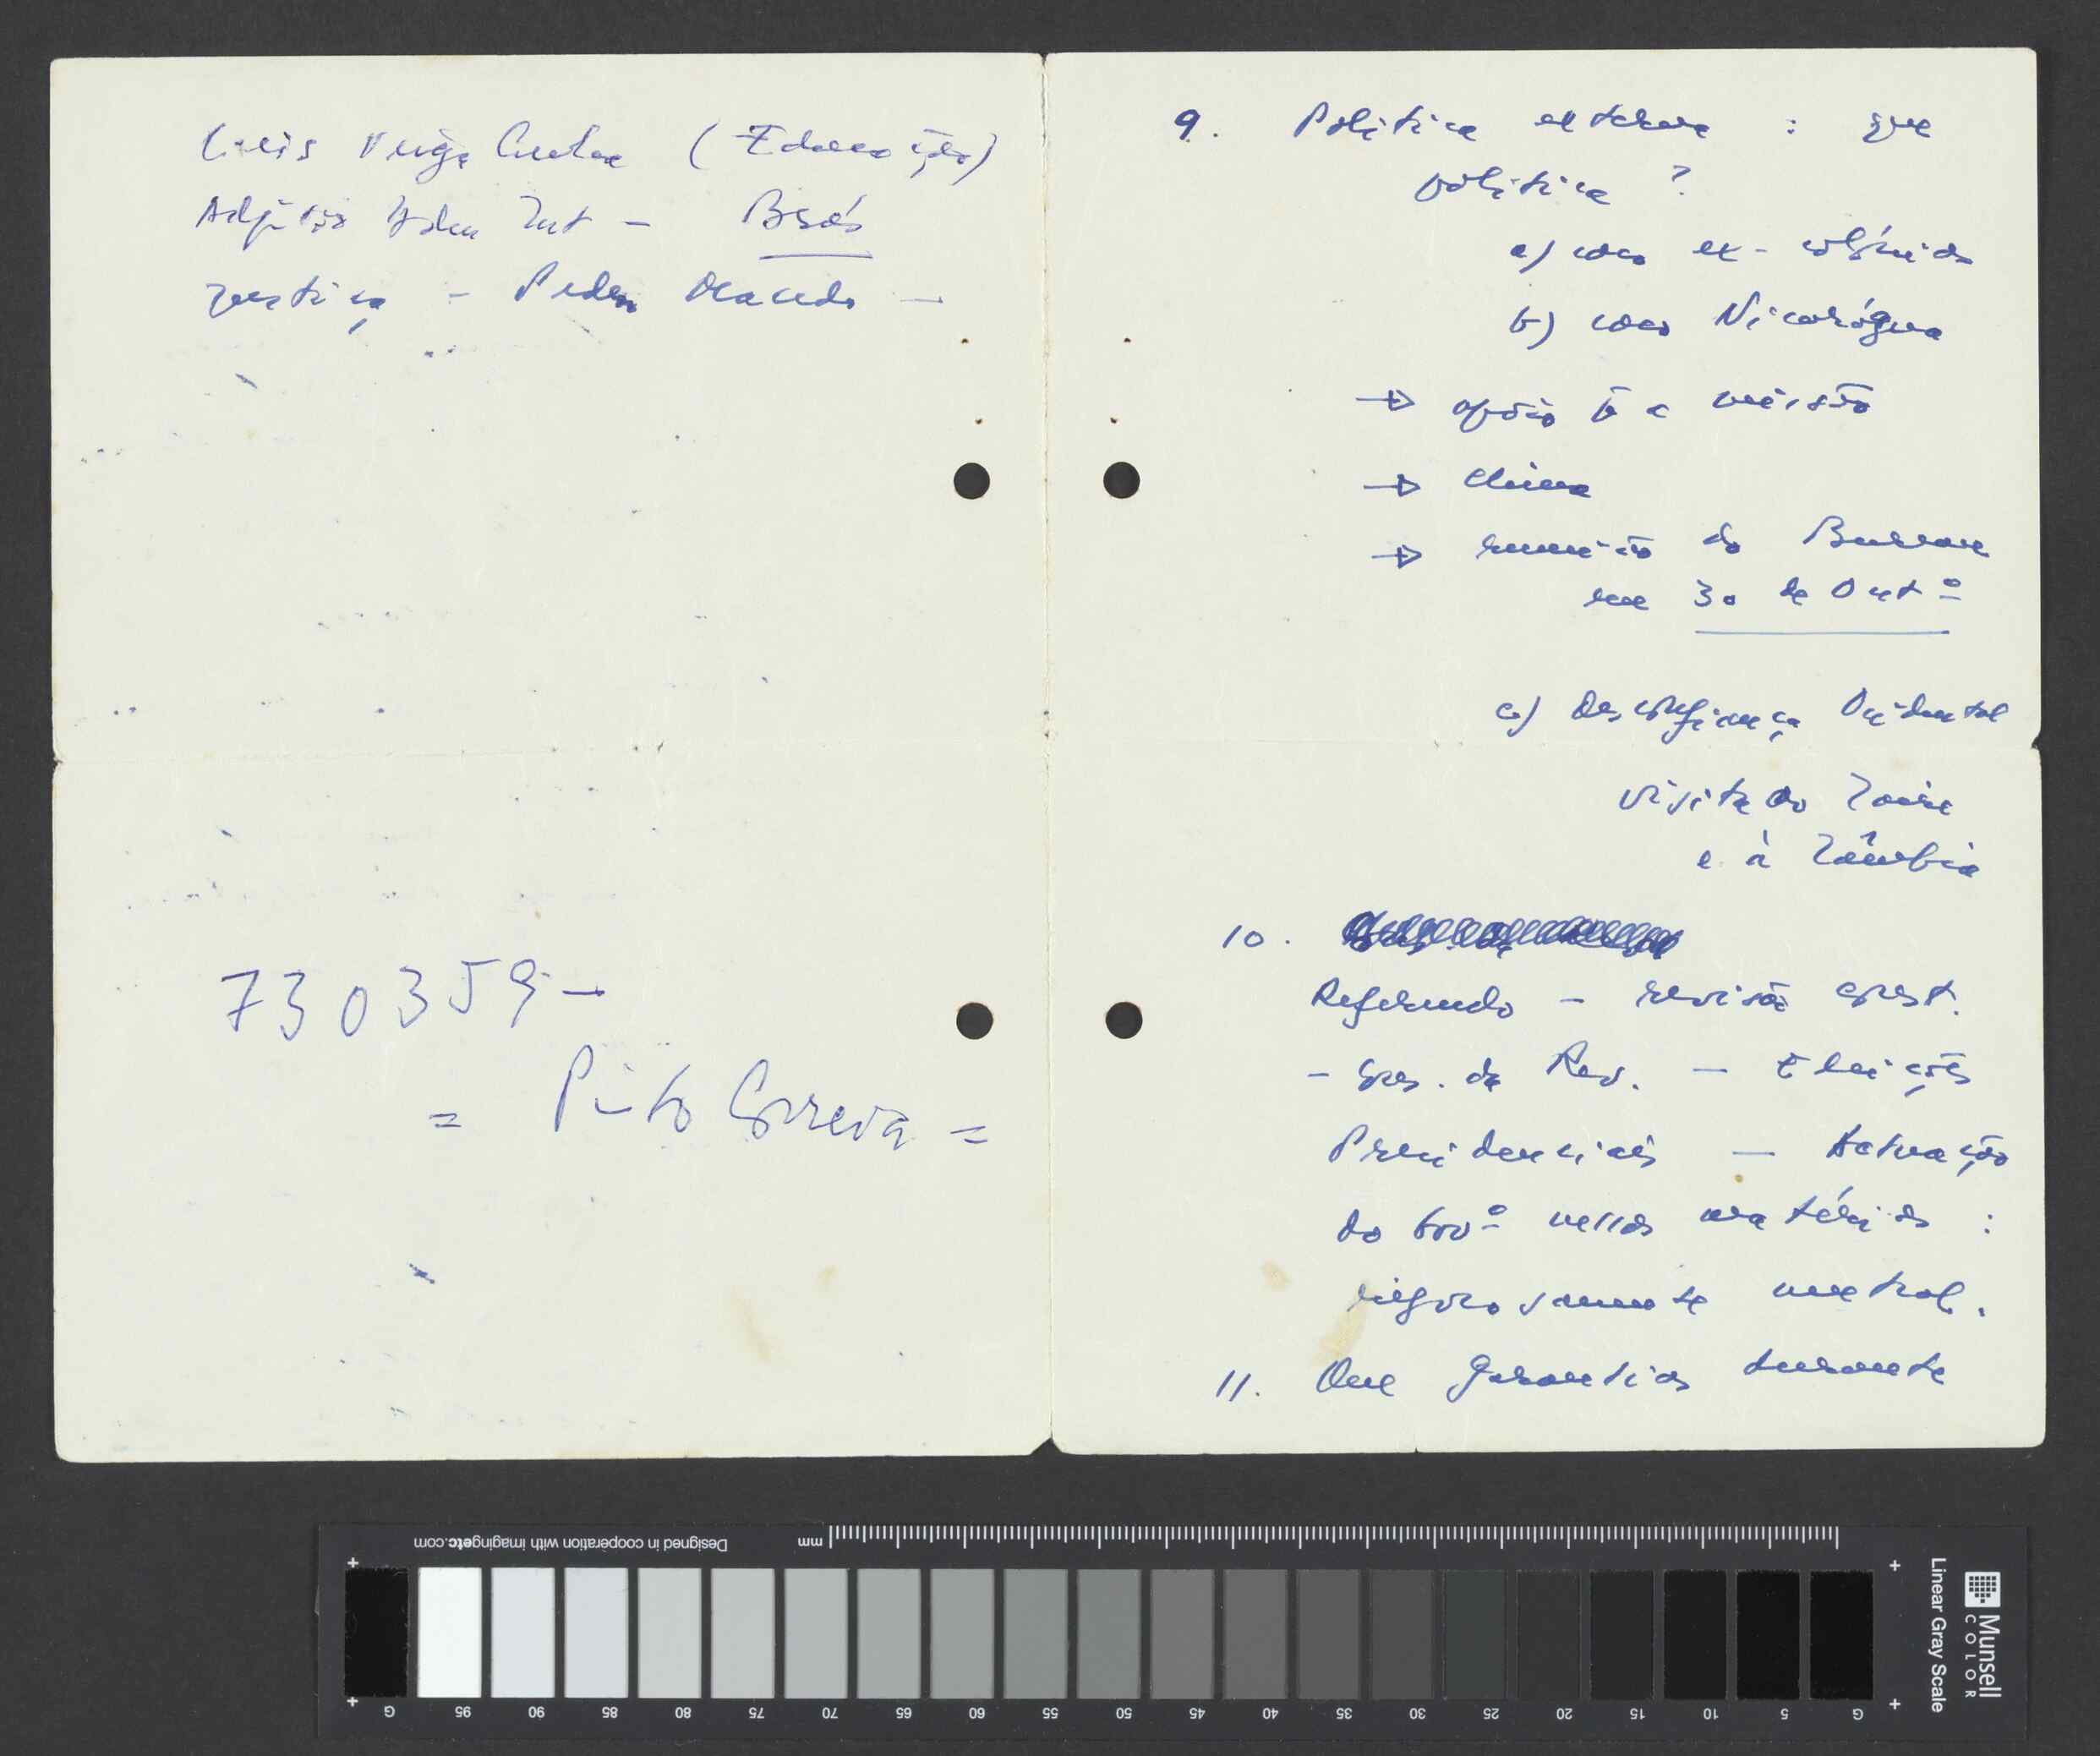 Luis Veiga Cunha (Educação)
Adjunto Adm Int – Brás
Justiça – Pedro Macedo –
730359 –
= Pinto Correia =
9. Politica externa : que
politica ?
a) com ex-colónias
b) com Nicarágua
→ apoio à
→ China
→ reunião do Bureau
em 30 de Outº
c) Desconfiança Ocidental
visita ao Zaire
e à Zâmbia
10.
Referendo – revisão const.
– Cons. da Rev. – Eleições
Presidenciais – Actuação
do Govº nessas matérias :
rigorosamente neutral.
11. Que garantias durante
Designed in cooperation with imagingetc.com
mm
Munsell
COLOR
Linear Gray Scale
G 95 90 85 80 75 70 65 60 55 50 45 40 35 30 25 20 15 10 5 G